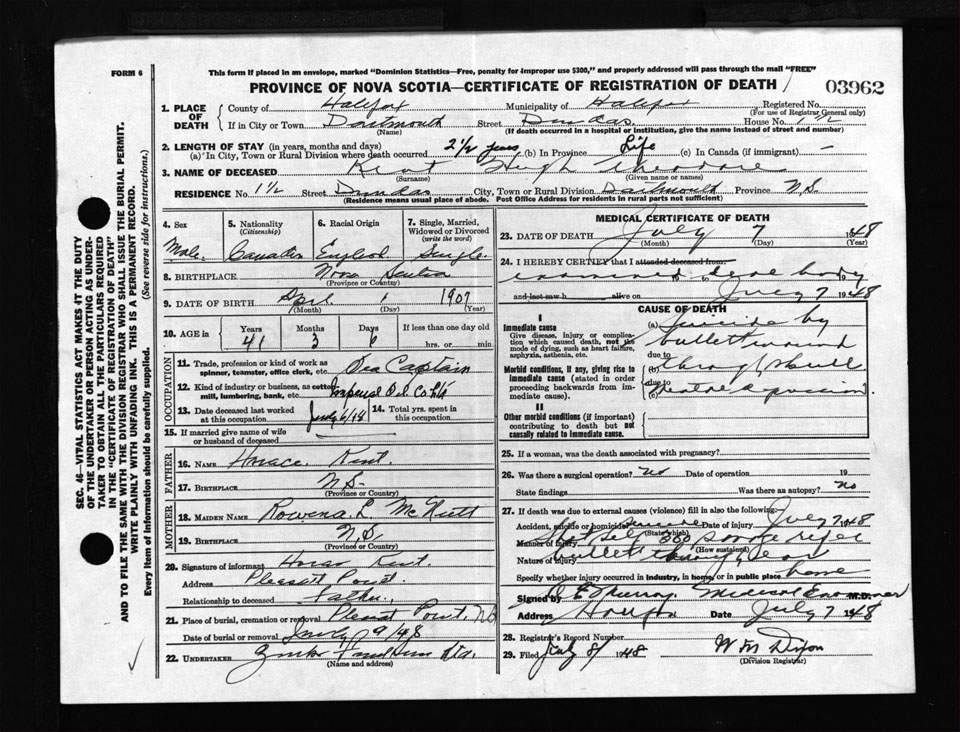 FORM 6
This form if placed in an envelope, marked "Dominion Statistics—Free, penalty for improper use $300," and properly addressed will pass through the mail "FREE"
PROVINCE OF NOVA SCOTIA—CERTIFICATE OF REGISTRATION OF DEATH
03962
1. PLACE OF DEATH
County of Halifax Municipality of Halifax Registered No.
(For use of Registrar General only)
If in City or Town Dartmouth Street Dundas House No. 1 1/2
(Name) (If death occurred in a hospital or institution, give the name instead of street and number)
2. LENGTH OF STAY (in years, months and days)
(a) In City, Town or Rural Division where death occurred 2 1/2 years (b) In Province Life (c) In Canada (if immigrant) -
3. NAME OF DECEASED Kent Hugh Theodore
(Surname) (Given name or names)
RESIDENCE No. 1 1/2 Street Dundas City, Town or Rural Division Dartmouth Province N.S.
(Residence means usual place of abode. Post Office Address for residents in rural parts not sufficient)
4. Sex Male.
5. Nationality (Citizenship) Canadian
6. Racial Origin English
7. Single, Married, Widowed or Divorced (write the word) Single.
8. BIRTHPLACE Nova Scotia
(Province or Country)
9. DATE OF BIRTH April 1 1907
(Month) (Day) (Year)
10. AGE in Years Months Days If less than one day old
41 3 6 hrs. or min.
OCCUPATION
11. Trade, profession or kind of work as spinner, teamster, office clerk, etc. Sea Captain
12. Kind of industry or business, as cotton mill, lumbering, bank, etc. Imperial Oil Co Ltd
13. Date deceased last worked at this occupation July 6/48
14. Total yrs. spent in this occupation.
15. If married give name of wife or husband of deceased
FATHER
16. NAME Horace Kent
17. BIRTHPLACE N.S.
(Province or Country)
MOTHER
18. MAIDEN NAME Rowena L. McNutt
19. BIRTHPLACE N.S.
(Province or Country)
20. Signature of informant Horace Kent.
Address Pleasant Point.
Relationship to deceased Father.
21. Place of burial, cremation or removal Pleasant Point, N.S.
Date of burial or removal July 9/48
22. UNDERTAKER Ltd.
(Name and address)
MEDICAL CERTIFICATE OF DEATH
23. DATE OF DEATH July 7 1948
(Month) (Day) (Year)
24. I HEREBY CERTIFY that I attended deceased from:
examined dead body 19
and last saw h alive on July 7 1948
CAUSE OF DEATH
I
Immediate cause
Give disease, injury or complication which caused death, not the mode of dying, such as heart failure, asphyxia, asthenia, etc.
(a) Suicide by bullet wound
due to
Morbid conditions, if any, giving rise to immediate cause (stated in order proceeding backwards from immediate cause).
(b) through skull
due to
(c)
II
Other morbid conditions (if important) contributing to death but not causally related to immediate cause.
25. If a woman, was the death associated with pregnancy?
26. Was there a surgical operation? no Date of operation 19
State findings Was there an autopsy? no
27. If death was due to external causes (violence) fill in also the following:—
Accident, suicide or homicide? suicide Date of injury July 7 1948
(State which)
Manner of injury Shot self rifle
(How sustained)
Nature of injury bullet through
Specify whether injury occurred in industry, in home, or in public place home
Signed by Murray Medical Examiner M.D.
Address Halifax Date July 7 1948
28. Registrar's Record Number
29. Filed July 8/ 1948 W M Dixon
(Division Registrar)
SEC. 46—VITAL STATISTICS ACT MAKES IT THE DUTY OF THE UNDERTAKER OR PERSON ACTING AS UNDERTAKER TO OBTAIN ALL THE PARTICULARS REQUIRED IN THE "CERTIFICATE OF REGISTRATION OF DEATH" AND TO FILE THE SAME WITH THE DIVISION REGISTRAR WHO SHALL ISSUE THE BURIAL PERMIT.
WRITE PLAINLY WITH UNFADING INK. THIS IS A PERMANENT RECORD.
Every item of information should be carefully supplied. (See reverse side for instructions.)